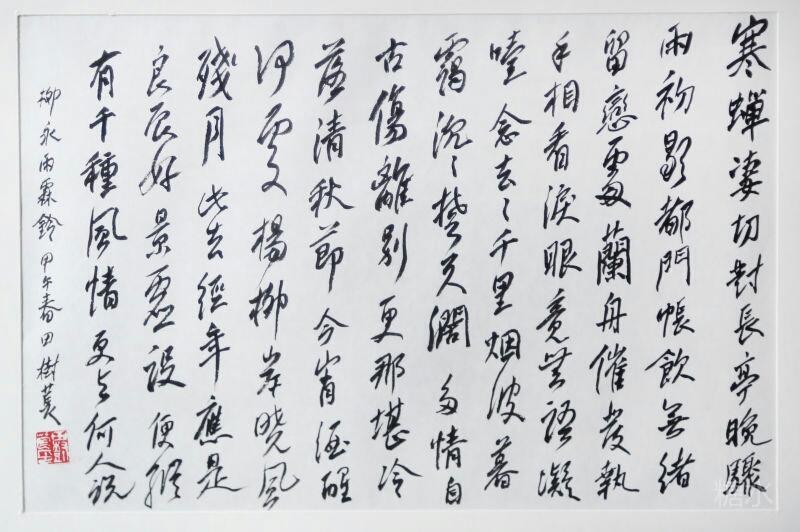 寒蟬凄切對長亭晚驟
雨初歇都門帳飲無緒
留戀處蘭舟催發執
手相看淚眼竟無語凝
噎念去々千里烟波暮
靄沉々楚天濶多情自
古傷離別更那堪冷
落清秋節今宵酒醒
何處楊柳岸曉風
殘月此去經年應是
良辰好景虛設便縱
有千種風情更与何人說
柳永雨霖鈴甲午春田樹萇
糖水